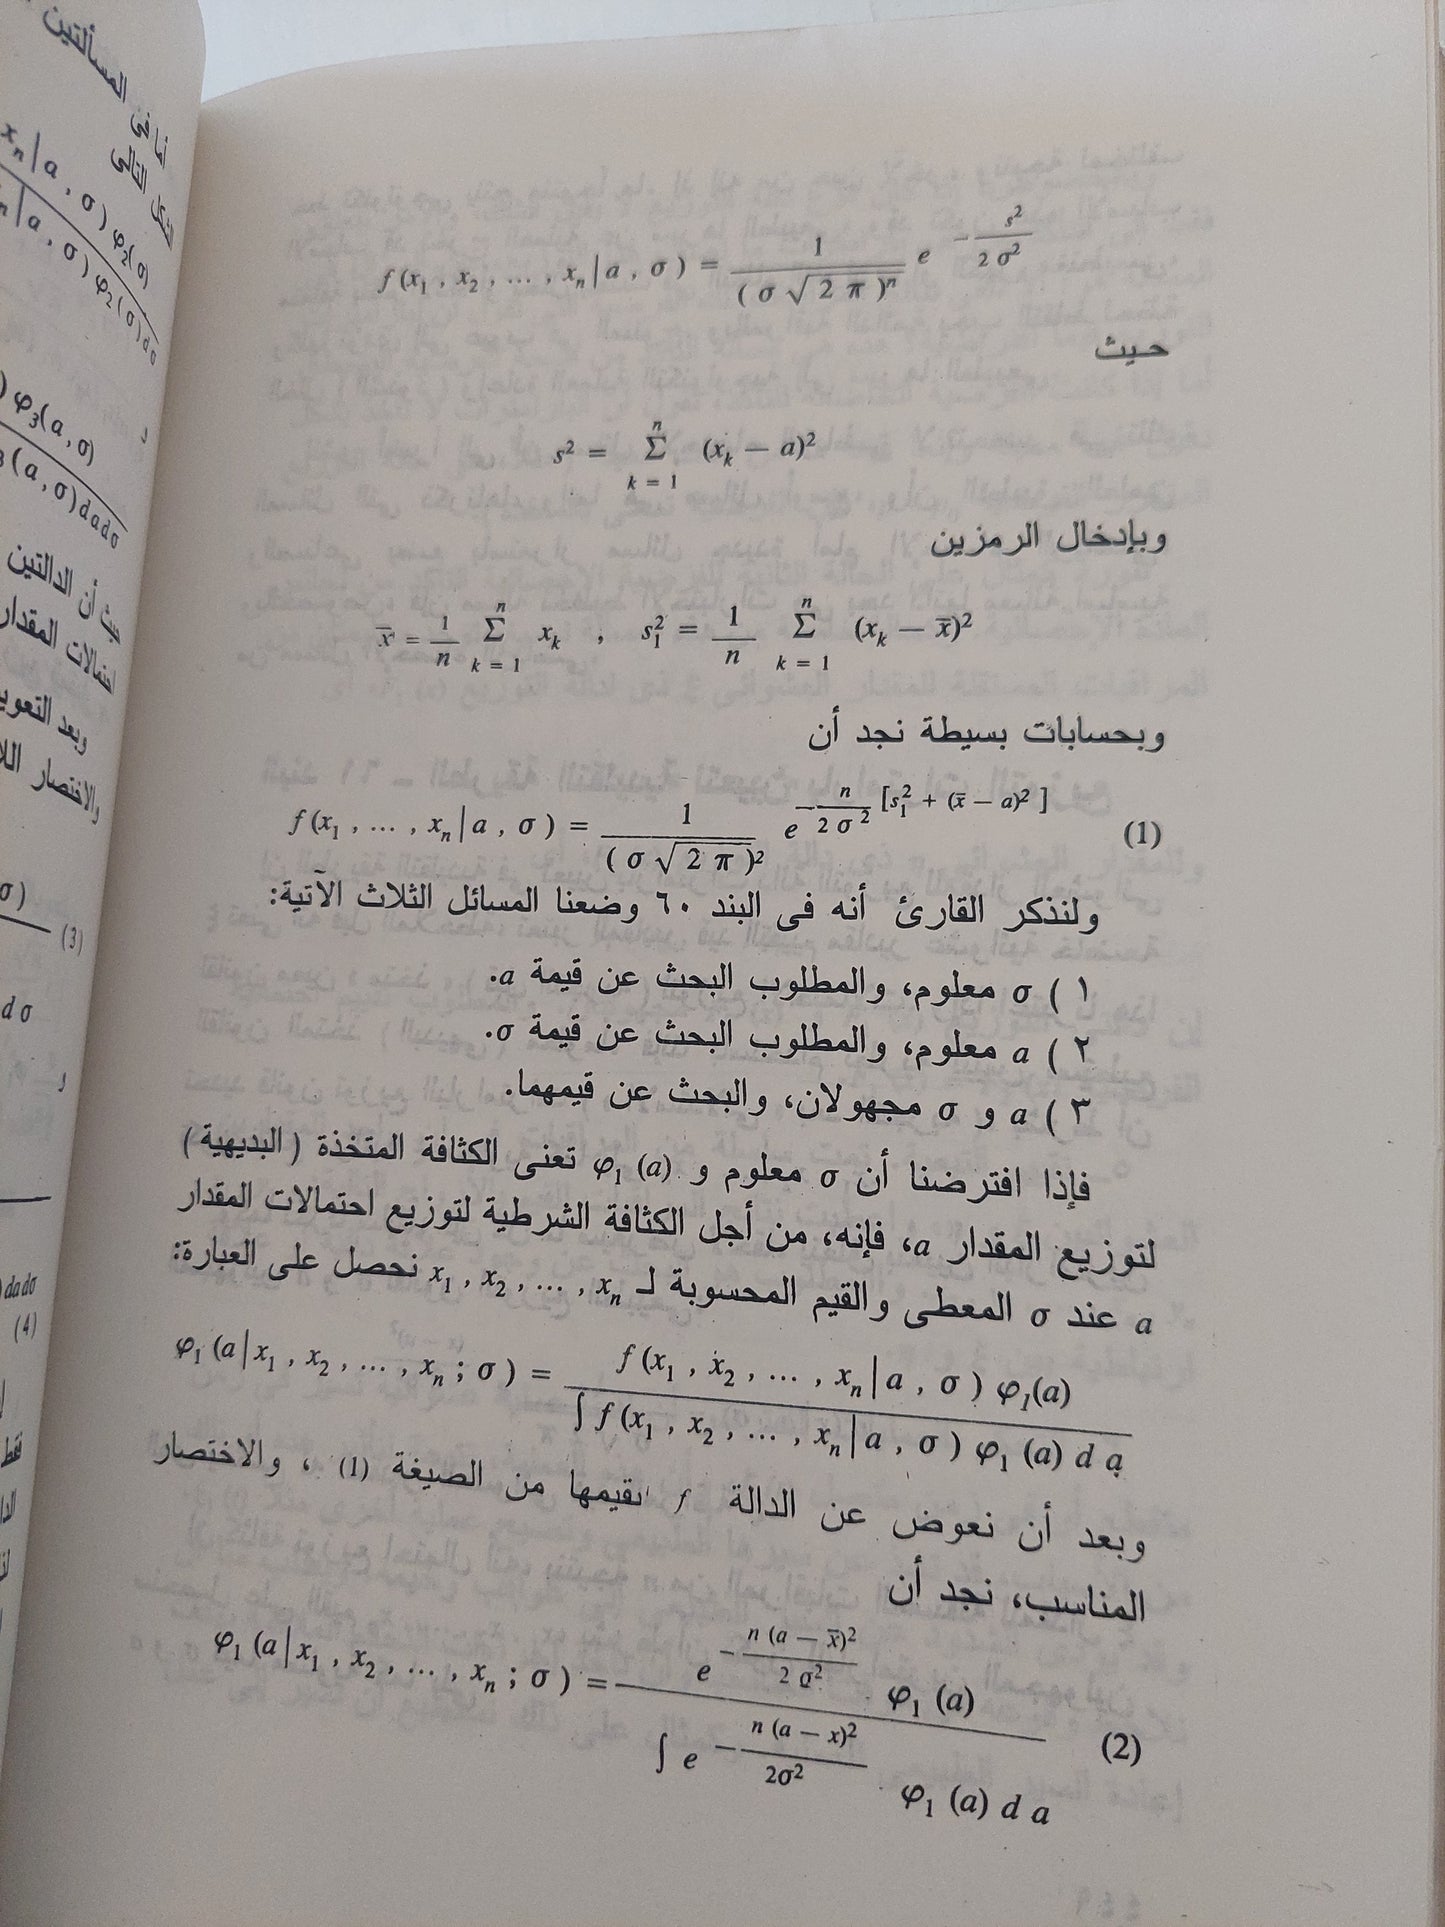 أما فى المسألتين
الشكل التالى
xₙ | a , σ ) φ₂(σ)
ₙ | a , σ ) φ₂(σ) dσ
) φ₃(a , σ)
₃(a , σ) da dσ
حيث أن الدالتين
احتمالات المقدار
وبعد
والاختصار
σ )
(3)
d σ
) da dσ
(4)
فقط
f (x₁ , x₂ , ... , xₙ | a , σ ) = 1 / ( σ √2 π )ⁿ e^( − s² / 2 σ² )
حيث
s² = Σ_{k = 1}^{n} (xₖ − a)²
وبإدخال الرمزين
x̄ = 1/n Σ_{k = 1}^{n} xₖ , s₁² = 1/n Σ_{k = 1}^{n} (xₖ − x̄)²
وبحسابات بسيطة نجد أن
f (x₁ , ... , xₙ | a , σ ) = 1 / ( σ √2 π )² e^( − n / 2 σ² [s₁² + (x̄ − a)² ] ) (1)
ولنذكر القارئ أنه فى البند ٦٠ وضعنا المسائل الثلاث الآتية:
١ ) σ معلوم، والمطلوب البحث عن قيمة a.
٢ ) a معلوم، والمطلوب البحث عن قيمة σ.
٣ ) a و σ مجهولان، والبحث عن قيمهما.
فإذا افترضنا أن σ معلوم و φ₁ (a) تعنى الكثافة المتخذة ( البديهية )
لتوزيع المقدار a، فإنه، من أجل الكثافة الشرطية لتوزيع احتمالات المقدار
a عند σ المعطى والقيم المحسوبة لـ x₁ , x₂ , ... , xₙ نحصل على العبارة:
φ₁ (a | x₁ , x₂ , ... , xₙ ; σ ) = f (x₁ , x₂ , ... , xₙ | a , σ ) φ₁(a) / ∫ f (x₁ , x₂ , ... , xₙ | a , σ ) φ₁ (a) d a
وبعد أن نعوض عن الدالة f بقيمها من الصيغة (1) ، والاختصار
المناسب، نجد أن
φ₁ (a | x₁ , x₂ , ... , xₙ ; σ ) = e^( − n (a − x̄)² / 2 σ² ) φ₁ (a) / ∫ e^( − n (a − x)² / 2σ² ) φ₁ (a) d a (2)